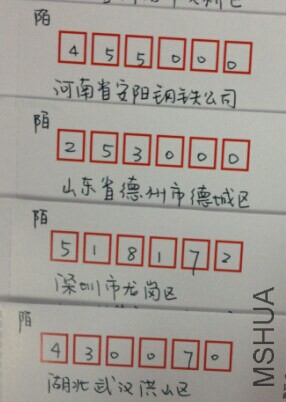 陌
455000
河南省安阳钢铁公司
陌
253000
山东省德州市德城区
陌
518172
深圳市龙岗区
陌
430070
湖北武汉洪山区
MSHUA